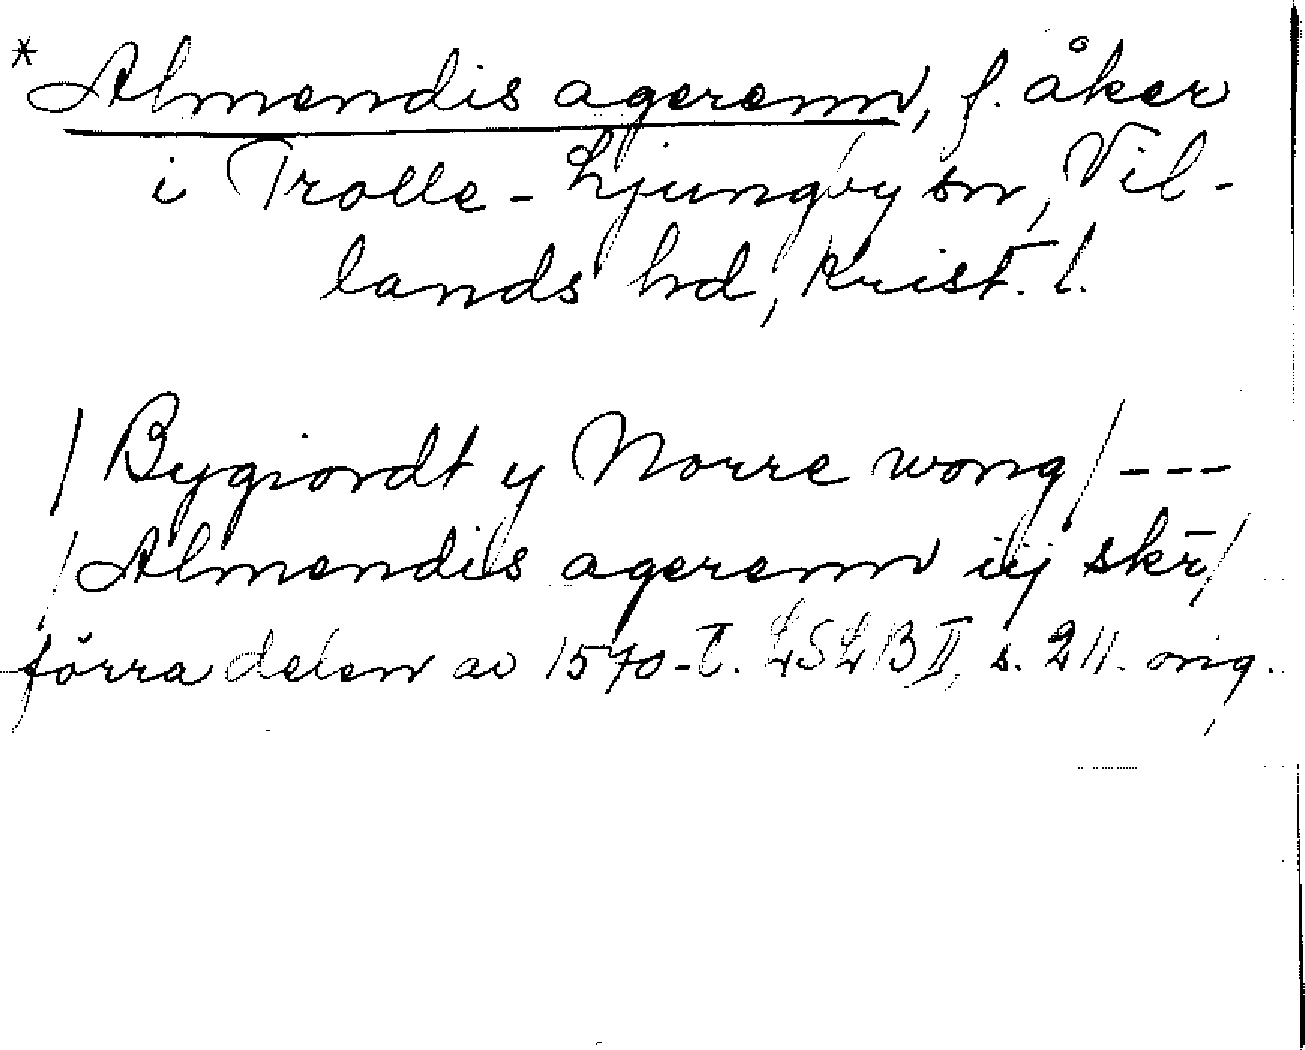 * Almendis agerenn, f. åker
i Trolle-Ljungby sn, Vil-
lands hd, Krist. l.
/ Bygiordt y Norre wong / ---
/ Almendis agerenn iij skr̄ /
förra delen av 1570-t. LSLB II, s. 211. orig.